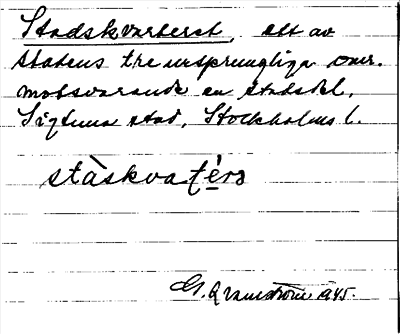 Stadskvarteret, ett av
stadens tre ursprungliga omr.
motsvarande en stadsdel.
Sigtuna stad, Stockholms l.
stàskvaṭé̱rə
G. Qvarnström 1945.